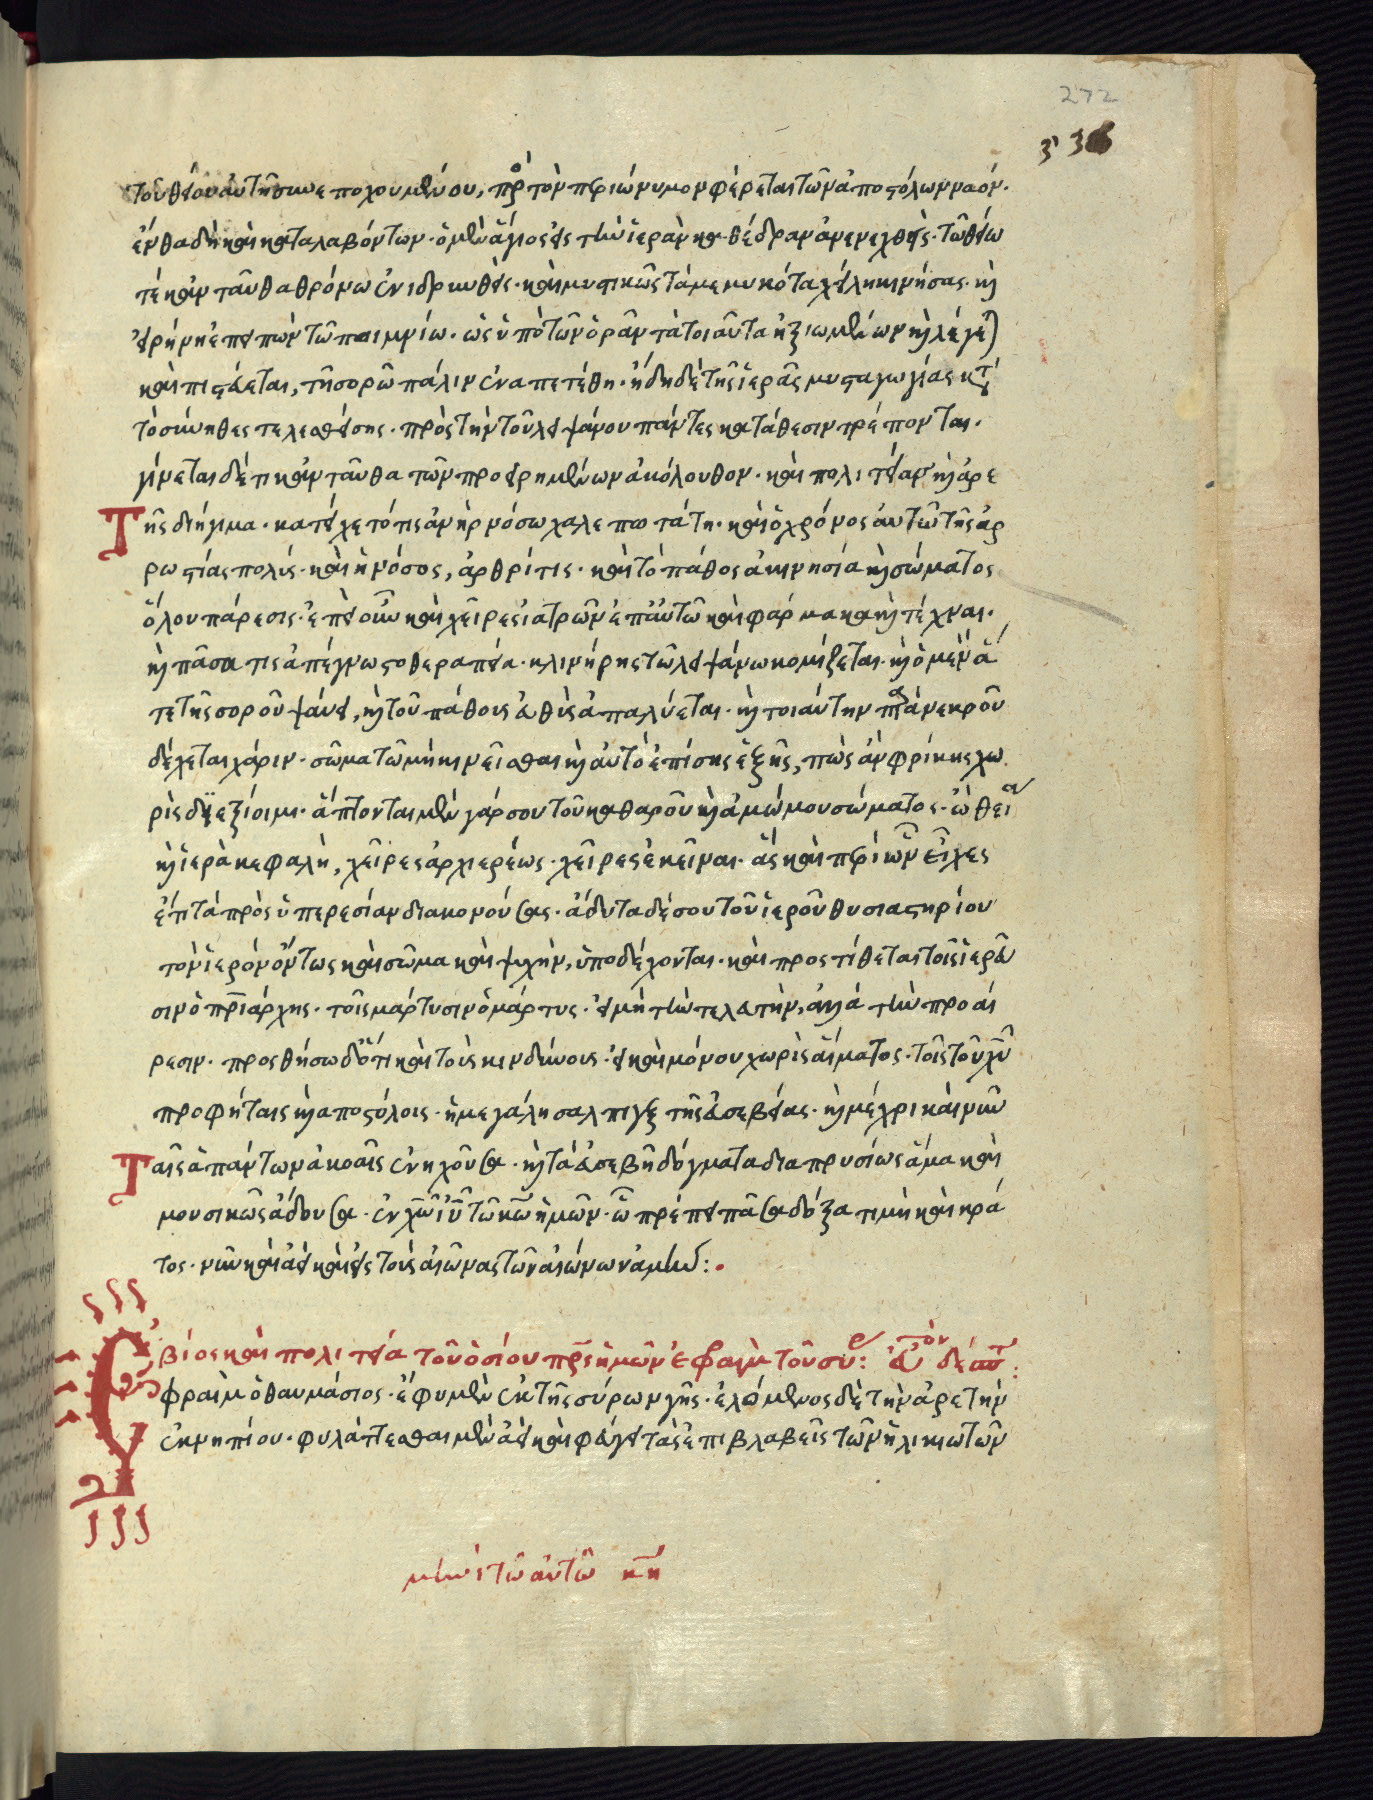 272
336
τοῦ θείου αὐτῆς ἐποχουμένου, πρὸς τὸν περιώνυμον φέρεται τῶν ἀποστόλων ναόν.
ἔνθα δὴ καὶ καταλαβόντων. ὁ μὲν ἅγιος εἰς τὴν ἱερὰν καθέδραν ἀνενεχθεὶς. τῶ θείω
τὲ κἀνταῦθα θρόνω ἐνιδρυθεὶς. καὶ μυστικῶς τὰ μεμυκότα χείλη κινήσας. καὶ
εἰρήνη ἐπειπὼν τῶ ποιμνίω. ὡς ὑπὸ τῶν ὁρᾶν τὰ τοιαῦτα ἠξιωμένων καὶ λέγεται
καὶ πιστεύεται, τῆ σορῶ πάλιν ἐναπετέθη. ἤδη δὲ τῆς ἱερᾶς μυσταγωγίας κατὰ
τὸ σύνηθες τελεσθείσης. πρὸς τὴν τοῦ λειψάνου πάντες κατάθεσιν τρέπονται.
γίνεται δέ τι κἀνταῦθα τῶν προειρημένων ἀκόλουθον. καὶ πολιτείας καὶ ἀρε
Τῆς διήγημα. κατείχετό τις ἀνὴρ νόσω χαλεπωτάτη. καὶ ὁ χρόνος αὐτῶ τῆς ἀρ
ρωστίας πολύς. καὶ ἡ νόσος, ἀρθρίτις. καὶ τὸ πάθος ἀκινησία καὶ σώματος
ὅλου πάρεσις. ἐπεὶ οὖν καὶ χεῖρες ἰατρῶν ἐπ αὐτῶ καὶ φάρμακα καὶ τέχναι.
καὶ πᾶσά τις ἀπέγνωστο θεραπεία. κλινήρης τῶ λειψάνω κομίζεται. καὶ ὁ μὲν ἅ
τε τῆς σοροῦ ψαύει, καὶ τοῦ πάθους εὐθὺς ἀπαλύεται. καὶ τοιαύτην παρὰ νεκροῦ
δέχεται χάριν. σῶμα τῶ μὴ κινεῖσθαι καὶ αὐτὸ ἐπίσης ἑξῆς, πῶς ἂν φρίκης χω
ρὶς διεξίοιμι. ἅπτονται μὲν γάρ σου τοῦ καθαροῦ καὶ ἀμώμου σώματος. ὦ θεία
καὶ ἱερὰ κεφαλὴ, χεῖρες ἀρχιερέως. χεῖρες ἐκεῖναι. ἃς καὶ περιὼν εἶχες
ἐπὶ τὰ πρὸς ὑπερεσίαν διακονούσας. ἄδυτα δέ σου τοῦ ἱεροῦ θυσιαστηρίου
τὸν ἱερὸν ὄντως καὶ σῶμα καὶ ψυχὴν, ὑποδέχονται. καὶ προστίθεται τοῖς ἱερεῦ
σιν ὁ πριάρχης. τοῖς μάρτυσιν ὁ μάρτυς. εἰ μὴ τὴν τελευτὴν, ἀλλὰ τὴν προαί
ρεσιν. προσθήσω δ' ὅτι καὶ τοὺς κινδύνους. εἰ καὶ μόνου χωρὶς αἵματος. τοῖς τοῦ χυ
προφήταις καὶ ἀποστόλοις. ἡ μεγάλη σάλπιγξ τῆς εὐσεβείας. καὶ μέχρι καὶ νῦν
Ταῖς ἁπάντων ἀκοαῖς ἐνηχοῦσα. καὶ τὰ εὐσεβῆ δόγματα διαπρυσίως ἅμα καὶ
μουσικῶς ἄδουσα. ἐν χω ιυ τῶ κω ἡμῶν. ὧ πρέπει πᾶσα δόξα τιμὴ καὶ κρά
τος. νῦν καὶ ἀεὶ καὶ εἰς τοὺς αἰῶνας τῶν αἰώνων ἀμήν:.
βίος καὶ πολιτεία τοῦ ὁσίου πρς ἡμῶν ἐφραὶμ τοῦ σύρ:
Ἐφραὶμ ὁ θαυμάσιος. ἔφυ μὲν ἐκ τῆς σύρων γῆς. ἑλόμενος δὲ τὴν ἀρετὴν
ἐκ νηπίου. φυλάττεσθαι μὲν ἀεὶ καὶ φεύγει τὰς ἐπιβλαβεῖς τῶν ἡλικιωτῶν
μηνὶ τῶ αὐτῶ κη